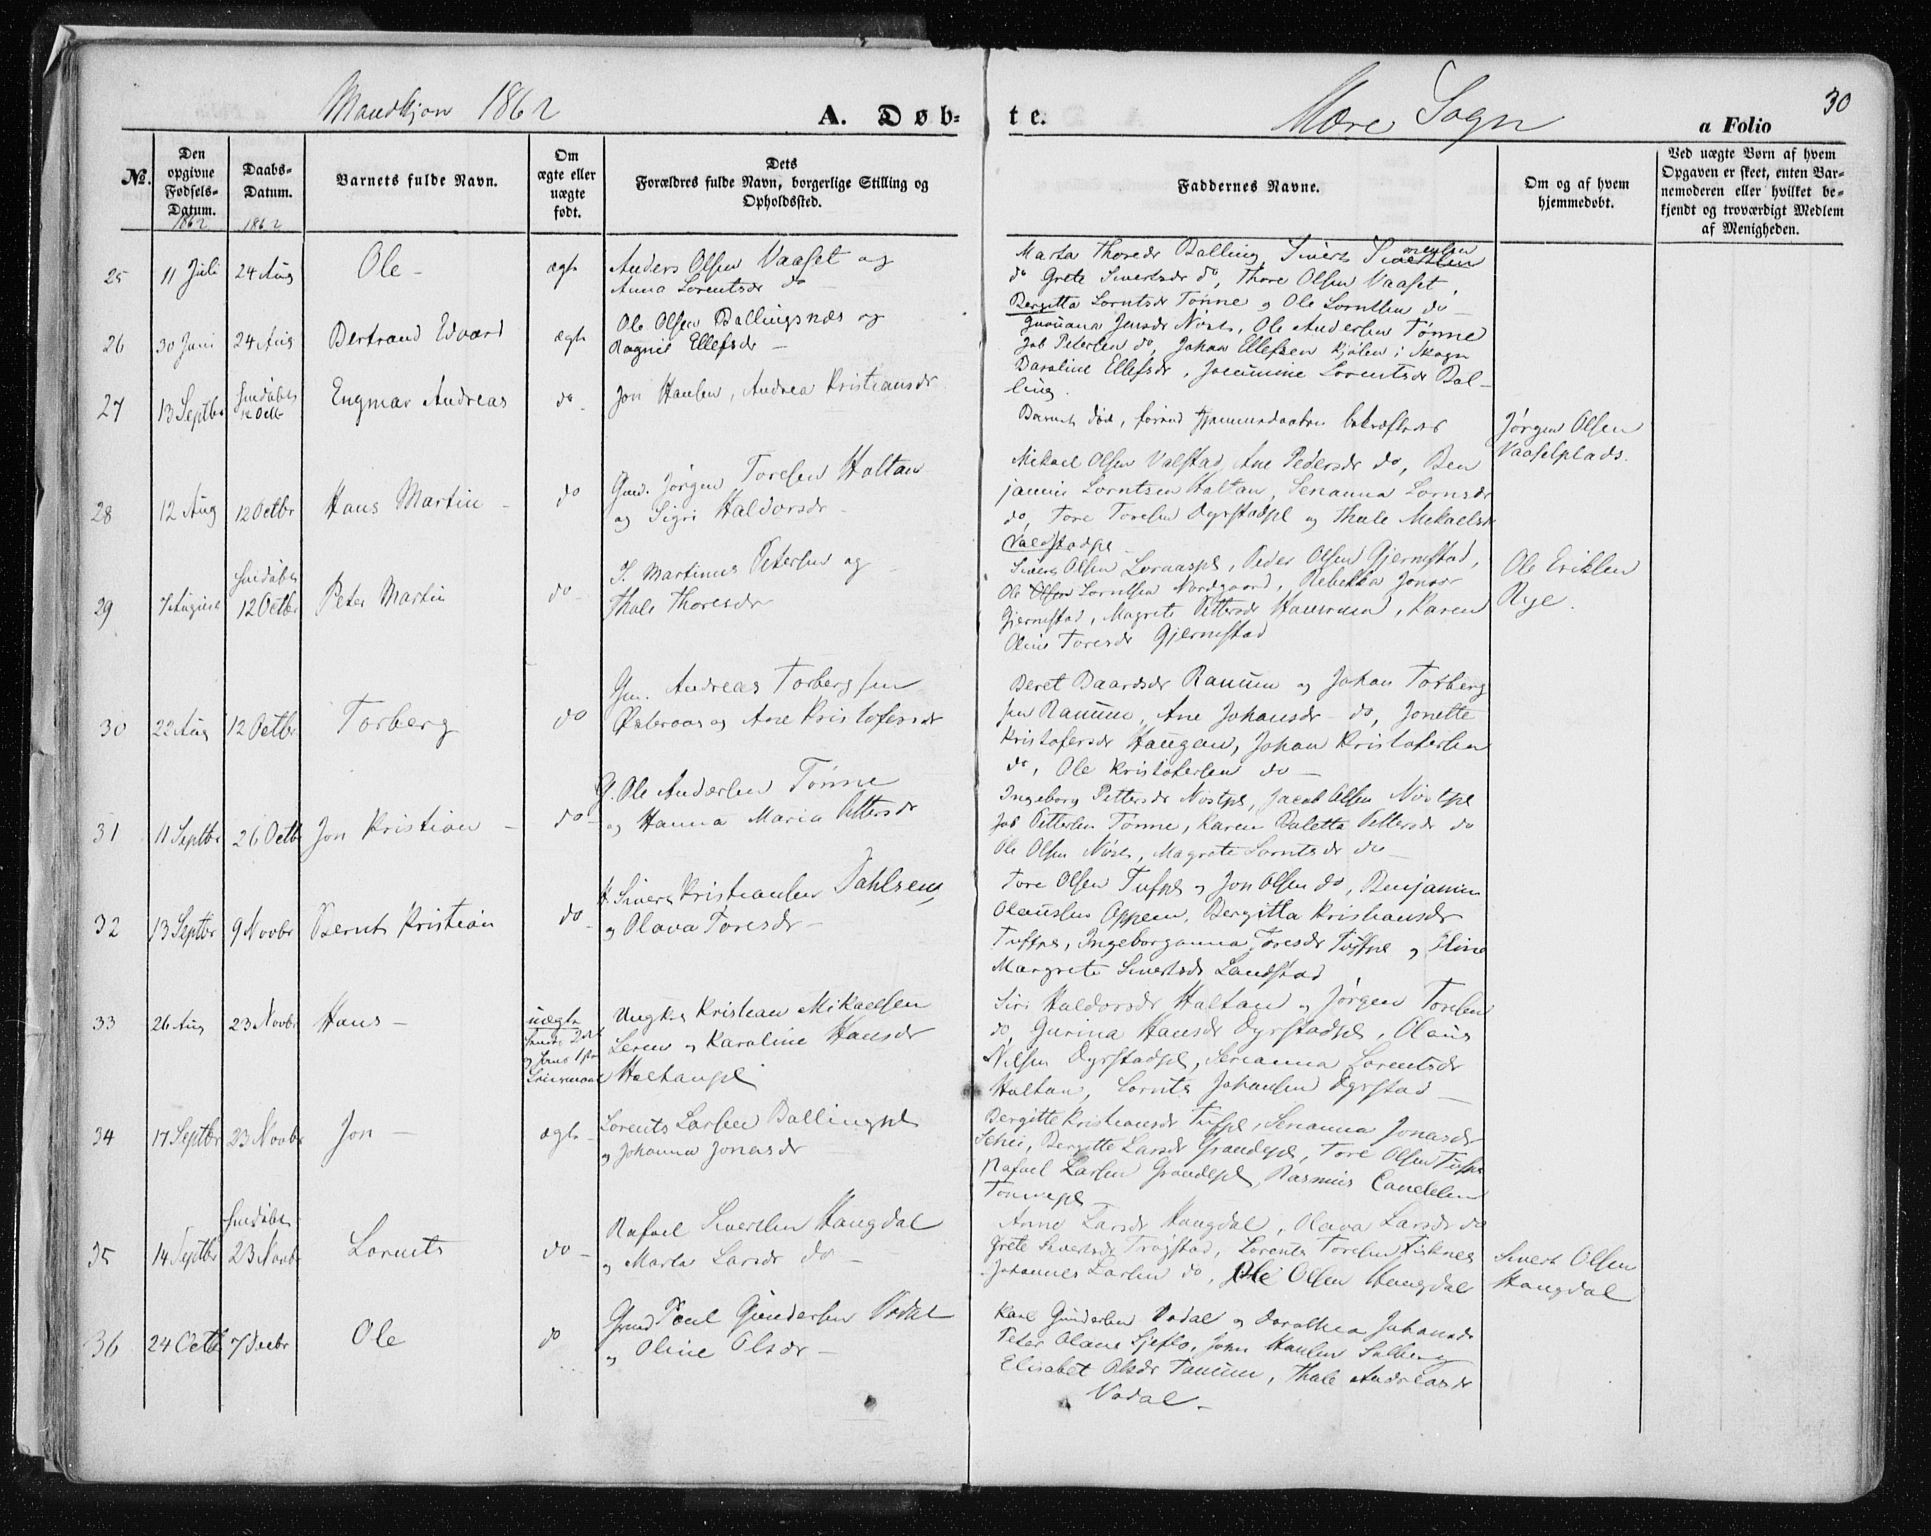 Mandkjøn 1862
A. Døb-
te.
Mære Sogn
30
a Folio
№.
Den opgivne Fødsels-Datum.
Daabs-Datum.
Barnets fulde Navn.
Om ægte eller uægte født.
Dets Forældres fulde Navn, borgerlige Stilling og Opholdssted.
Faddernes Navne.
Om og af hvem hjemmedøbt.
Ved uægte Børn af hvem Opgaven er skeet, enten Barnemoderen eller hvilket bekjendt og troværdigt Medlem af Menigheden.
1862
1862
25 11 Juli 24 Aug Ole - ægte
Anders Olsen Vaaset og
Anna Lorentsdr do -
Marta Thoresdr Balling, Sivert
do Grete Sivertsdr do, Thore Olsen Vaaset,
Bergitta Lorntsdr Tønne og Ole Lorntsen do -
26 30 Juni 24 Aug Bertrand Edvard ægte
Ole Olsen Ballingsnæs og
Ragnil Ellefsdr -
Jensdr Nøst, Ole Andersen Tønne
Job Petersen do, Johan Ellefsen Kjølen i Skogn
Baroline Ellefsdr, Lorentsdr Bal-
ling.
27 13 Septbr hmdøbt 12 Octb Engmar Andreas do -
Jon Hansen, Andrea Kristiansdr
Barnet døde, førend hjemmedaaben bekræftedes
Jørgen Olsen
Vaasetplads.
28 12 Aug 12 Octbr Hans Martin - do
Gmd. Jørgen Toresen Haltan
og Sigri Haldorsdr -
Mikael Olsen Valstad, Ane Pedersdr do, Ben
jamin Lorntsen Haltan, Serianna Lornsdr
do, Tore Toresen Dyrstadpl og Thale Mikaelsdr
Valdstadpl -
29 7 August hmdøbt 12 Octbr Peter Martin do -
I. Martinus Petersen og
Thale Thoresdr
Sivert Olsen Lornaaspl, Peder Olsen Gjermstad,
Ole Olsen Lorntsen Nordgaard, Rebekka Jonsdr
Gjermstad, Magrete Pettersdr Hammem, Karen
Oline Toresdr Gjermstad
Ole Eriksen
Rye.
30 22 Aug 12 Octbr Torberg do
Gm. Andreas Torbergsen
Østeraas og Ane Kristofersdr
Beret Baardsdr Ranum og Johan Torberg
sen Ranum, Ane Johansdr do, Jonette
Kristofersdr Haugan, Johan Kristofersen
do, Ole Kristofersen do -
31 11 Septbr 26 Octb Jon Kristian - do -
G. Ole Andersen Tønne
og Hanna Maria Pettersdr
Ingeborg Pettersdr Nøstpl, Jacob Olsen Nøstpl
Job Pettersen Tønne, Karen Valetta Pettersdr do
Ole Olsen Nøst, Magrete Lorntsdr do -
32 13 Septbr 9 Novbr Bernt Kristian do -
Sivert Kristiansen Dahlsem
og Olava Toresdr -
Tore Olsen Tufpl og Jon Olsen do, Benjamin
Olaussen Oppem, Bergitta Kristiansdr
Tufpl, Ingeborganna Toresdr Tufpl og Eline
Margrete Sivertsdr Landstad
33 26 Aug 23 Novbr Hans - uægte
Ungk. Kristian Mikaelsen
Leren og Karoline Hansdr
Haltanpl
Siri Haldorsdr Haltan og Jørgen Toresen
do, Gurina Hansdr Dyrstadpl, Olaus
Nilsen Dyrstadpl, Serianna Lorentsdr
Haltan, Lornts Johansen Dyrstad -
34 17 Septbr 23 Novbr Jon - ægte -
Lorents Larsen Ballingpl
og Johanna Jonasdr
Bergitte Kristiansdr Tufpl, Serianna Jonasdr
Schei, Bergitte Larsdr Grandepl, Tore Olsen Tufpl
Rafael Larsen Grandepl, Rasmus
Tønnepl -
35 14 Septbr hmdøbt 23 Novbr Lorents do -
Rafael Sivertsen Haugdal
og Marta Larsdr do -
Anne Larsdr Haugdal, Olava Larsdr do
Grete Sivertsdr Trøgstad, Lorents Toresen Fisknes
Johannes Larsen do, Ole Olsen Haugdal
Sivert Olsen
Haugdal
36 24 Octb 7 Decbr Ole do
Gmd Paul Gundersen Vodal
og Oline Olsdr -
Karl Gundersen Vodal og Dorothea Johansdr
Peter Olaus Sjeflo, John Hansen Salberg
Elisabet Olsdr Tanum, Thale Andreasdr
Vodal -